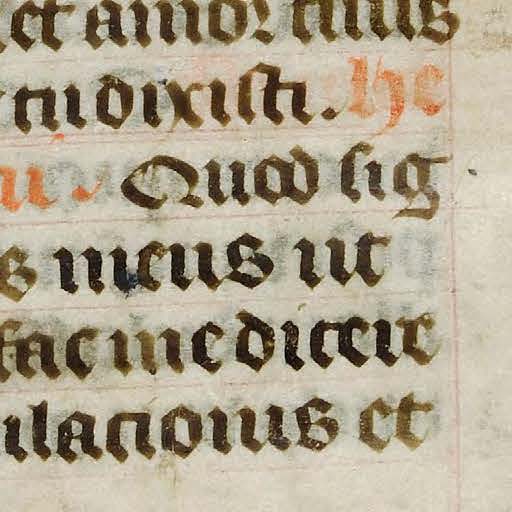 et amor tuus
tudixisti. he
u. Quod sig
s meus ut
fac me dicere
ulationis et